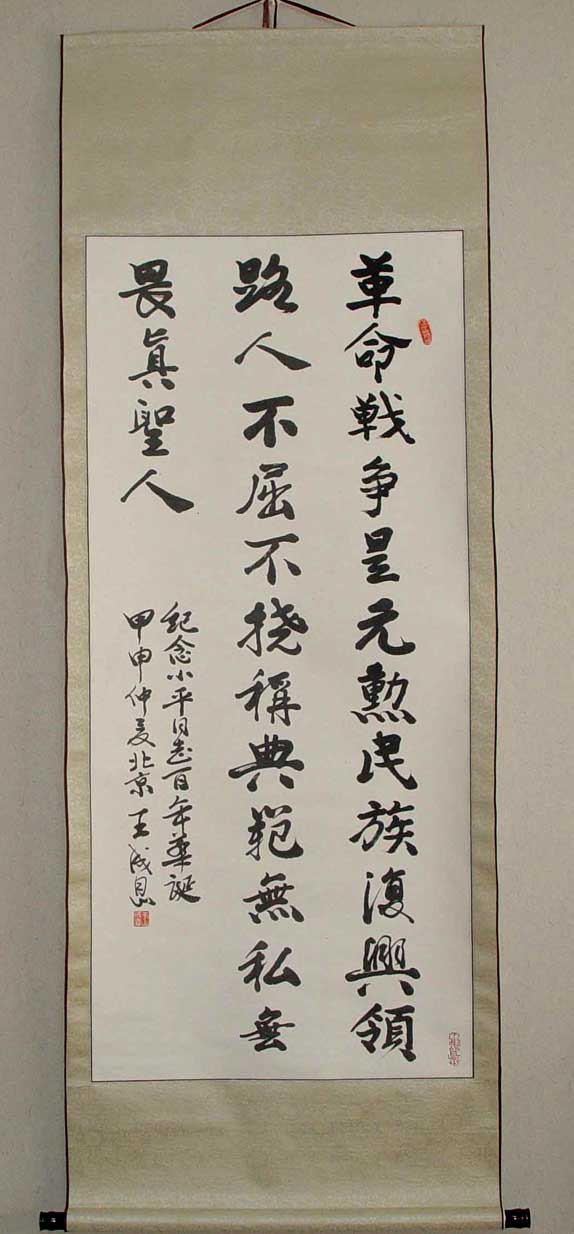 革命戰争是元勲民族復興領
路人不屈不撓稱典範無私無
畏真聖人
纪念小平同志百年華誕
甲申仲夏北京王成恩